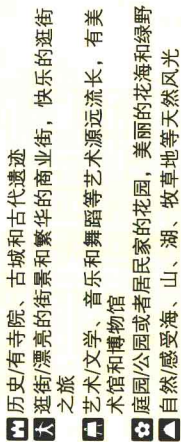 历史/有寺院、古城和古代遗迹
逛街/漂亮的街景和繁华的商业街，快乐的逛街
之旅
艺术/文学、音乐和舞蹈等艺术源远流长，有美
术馆和博物馆
庭园/公园或者居民家的花园，美丽的花海和绿野
自然/感受海、山、湖、牧草地等天然风光